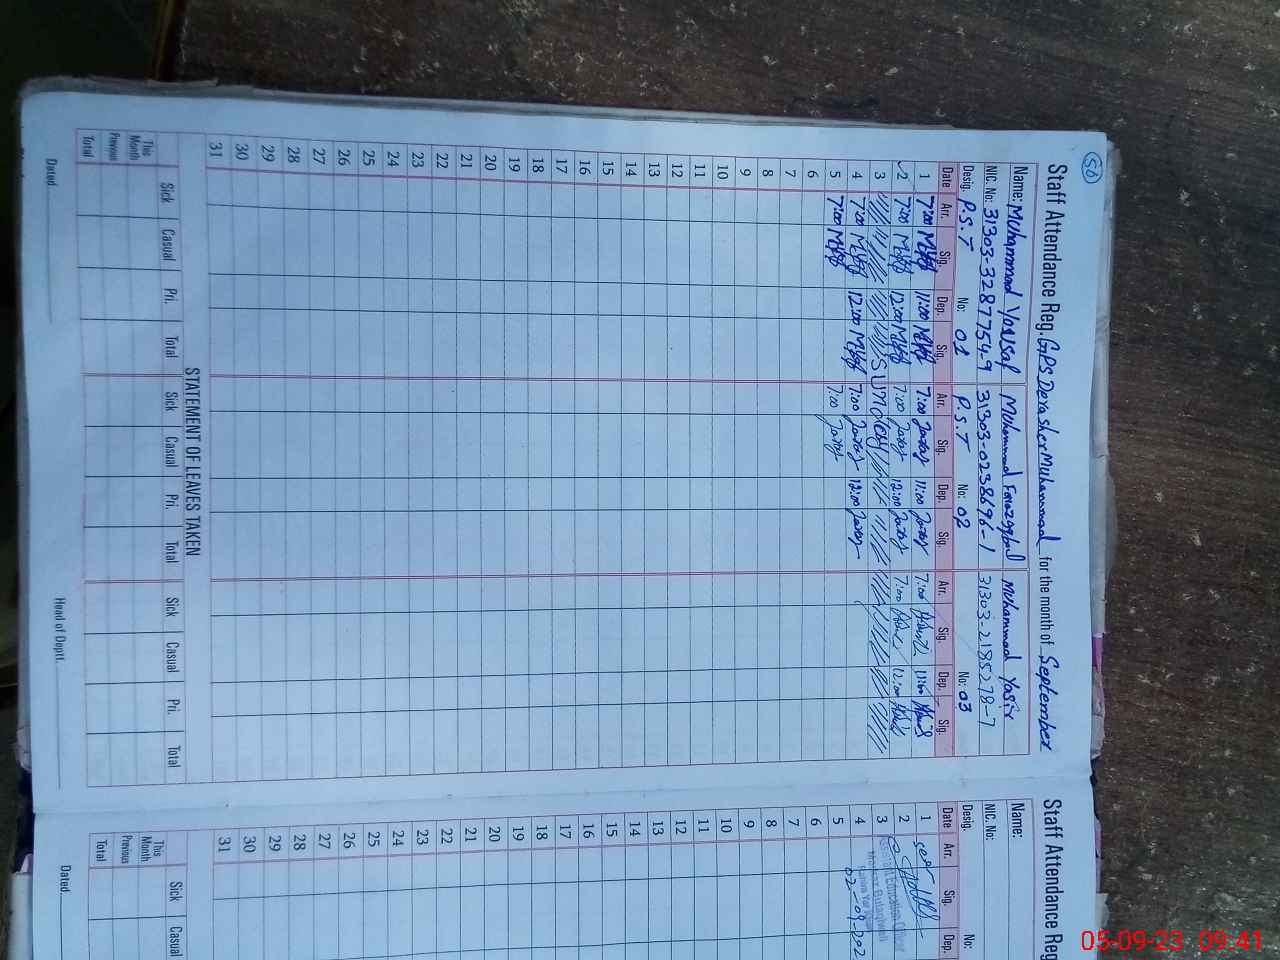 50
Staff Attendance Reg. GPS Dera Sher Muhammad for the month of September
Name: Muhammad Yousaf Muhammad Yasir
NIC. No: 31303-3287754-9 31303-0238696-1 31303-2185278-7
Desig. P.S.T No: 01 P.S.T No: 02 No: 03
Date Arr. Sig. Dep. Sig. Arr. Sig. Dep. Sig. Arr. Sig. Dep. Sig.
1 7:00 11:00 7:00 11:00 7:00 11:00
2 7:00 12:00 7:00 12:00 7:00 12:00
3 Sunday
4 7:00 12:00 7:00 12:00
5 7:00 7:00
6
7
8
9
10
11
12
13
14
15
16
17
18
19
20
21
22
23
24
25
26
27
28
29
30
31
STATEMENT OF LEAVES TAKEN
Sick Casual Pri. Total Sick Casual Pri. Total Sick Casual Pri. Total
This Month
Previous
Total
Dated. Head of Deptt.
Staff Attendance Reg
Name:
NIC. No:
Desig. No:
Date Arr. Sig. Dep.
1
2
3 Assistant Education Officer
4 02-09-202
5
6
7
8
9
10
11
12
13
14
15
16
17
18
19
20
21
22
23
24
25
26
27
28
29
30
31
Sick Casual
This Month
Previous
Total
Dated.
05-09-23 09:41